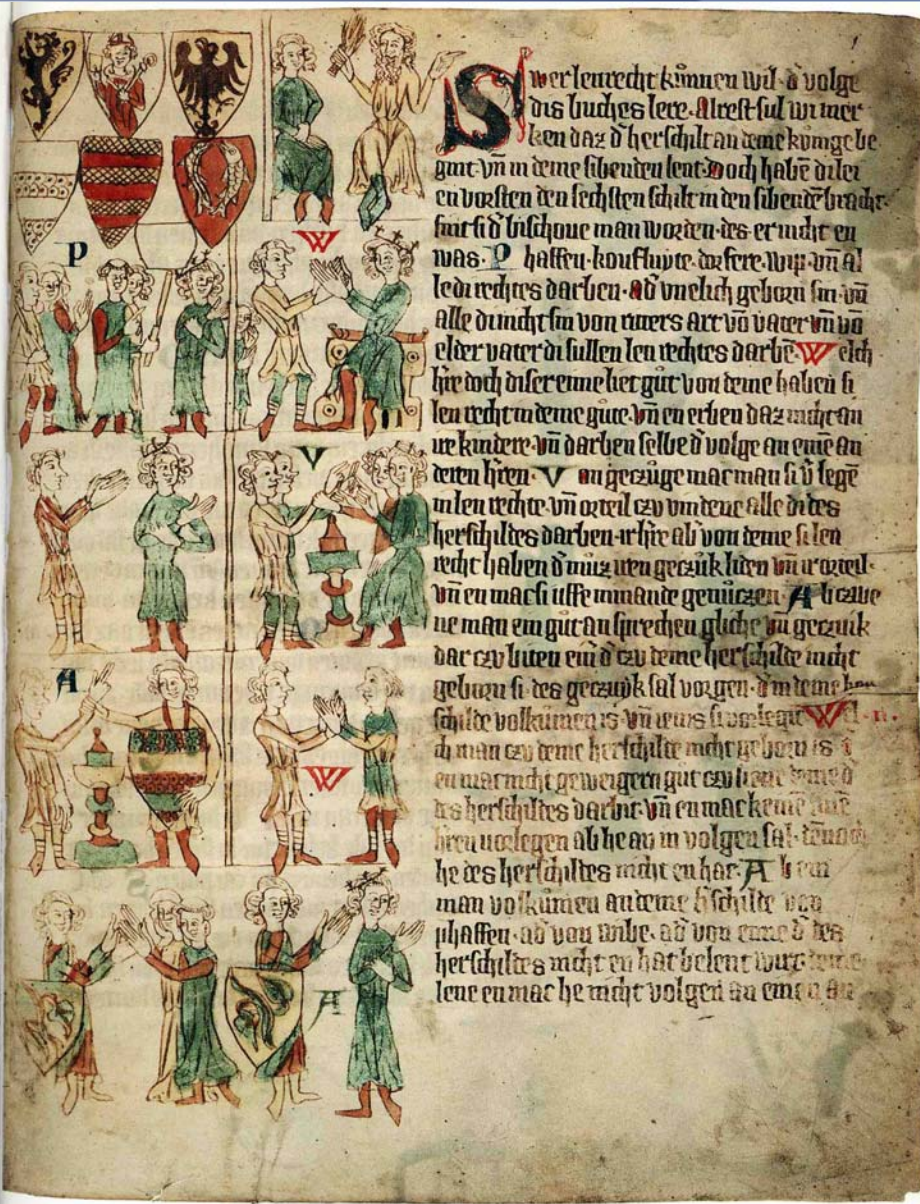 P
W
V
A
W
A
Swer lenrecht kůnnen wil · d̓ volge
dis buches lere. Alrest sul wir mer
ken daz d̓ herschilt an deme kůnge be
gint vn̄ in deme sibenden lent · Doch habē di lei
en vorsten den sechsten schilt in den sibendē bracht·
sint si d̓ bischoue man worden · des er nicht en
was · Phaffen · koufluyte · dorfere · wip · vn̄ al
le di rechtes darben · ad̓ vnelich geborn sin · vn̄
alle di nicht sin von ritters art vō vater vn̄ vō
elder vater di sullen len rechtes darbē · Welch
h̓re doch diser eime liet gůt von deme haben si
len recht in deme gůte · vn̄ en erben daz nicht an
ire kindere · vn̄ darben selbe d̓ volge an eine an
deren h̓ren · Von geczůge mac man si v̓legē
in len rechte · vn̄ orteil czu vindene alle di des
herschildes darben · ir h̓re ab̓ von deme si len
recht haben d̓ můz iren geczůk liden vn̄ ir orteil·
vn̄ en mac si uffe nimande genůczen · Ab czwe
ne man ein gůt an sprechen gliche vn̄ geczuik
dar czu biten ein d̓ czu deme herschilde nicht
geborn si · des geczuyk sal vorgen · d̓ in deme her
schilde volkůmen is · vn̄ ienis si vorlegit Wel
ch man czu deme herschilde nicht geborn is
en mac nicht geweigern gůt czu
des herschildes darbit · vn̄ en mac keine
h̓ren vorlegen ab he an in volgen sal ·
he des herschildes nicht en hat · Ab ein
man volkůmen an deme h̓schilde von
phaffen · ad̓ von wibe · ad̓ von eime d̓ des
herschildes nicht en hat belent wirt
lene en mac he nicht volgen an einen an